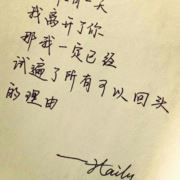 有一天
我离开了你
那我一定已经
试遍了所有可以回头
的理由
——Haily